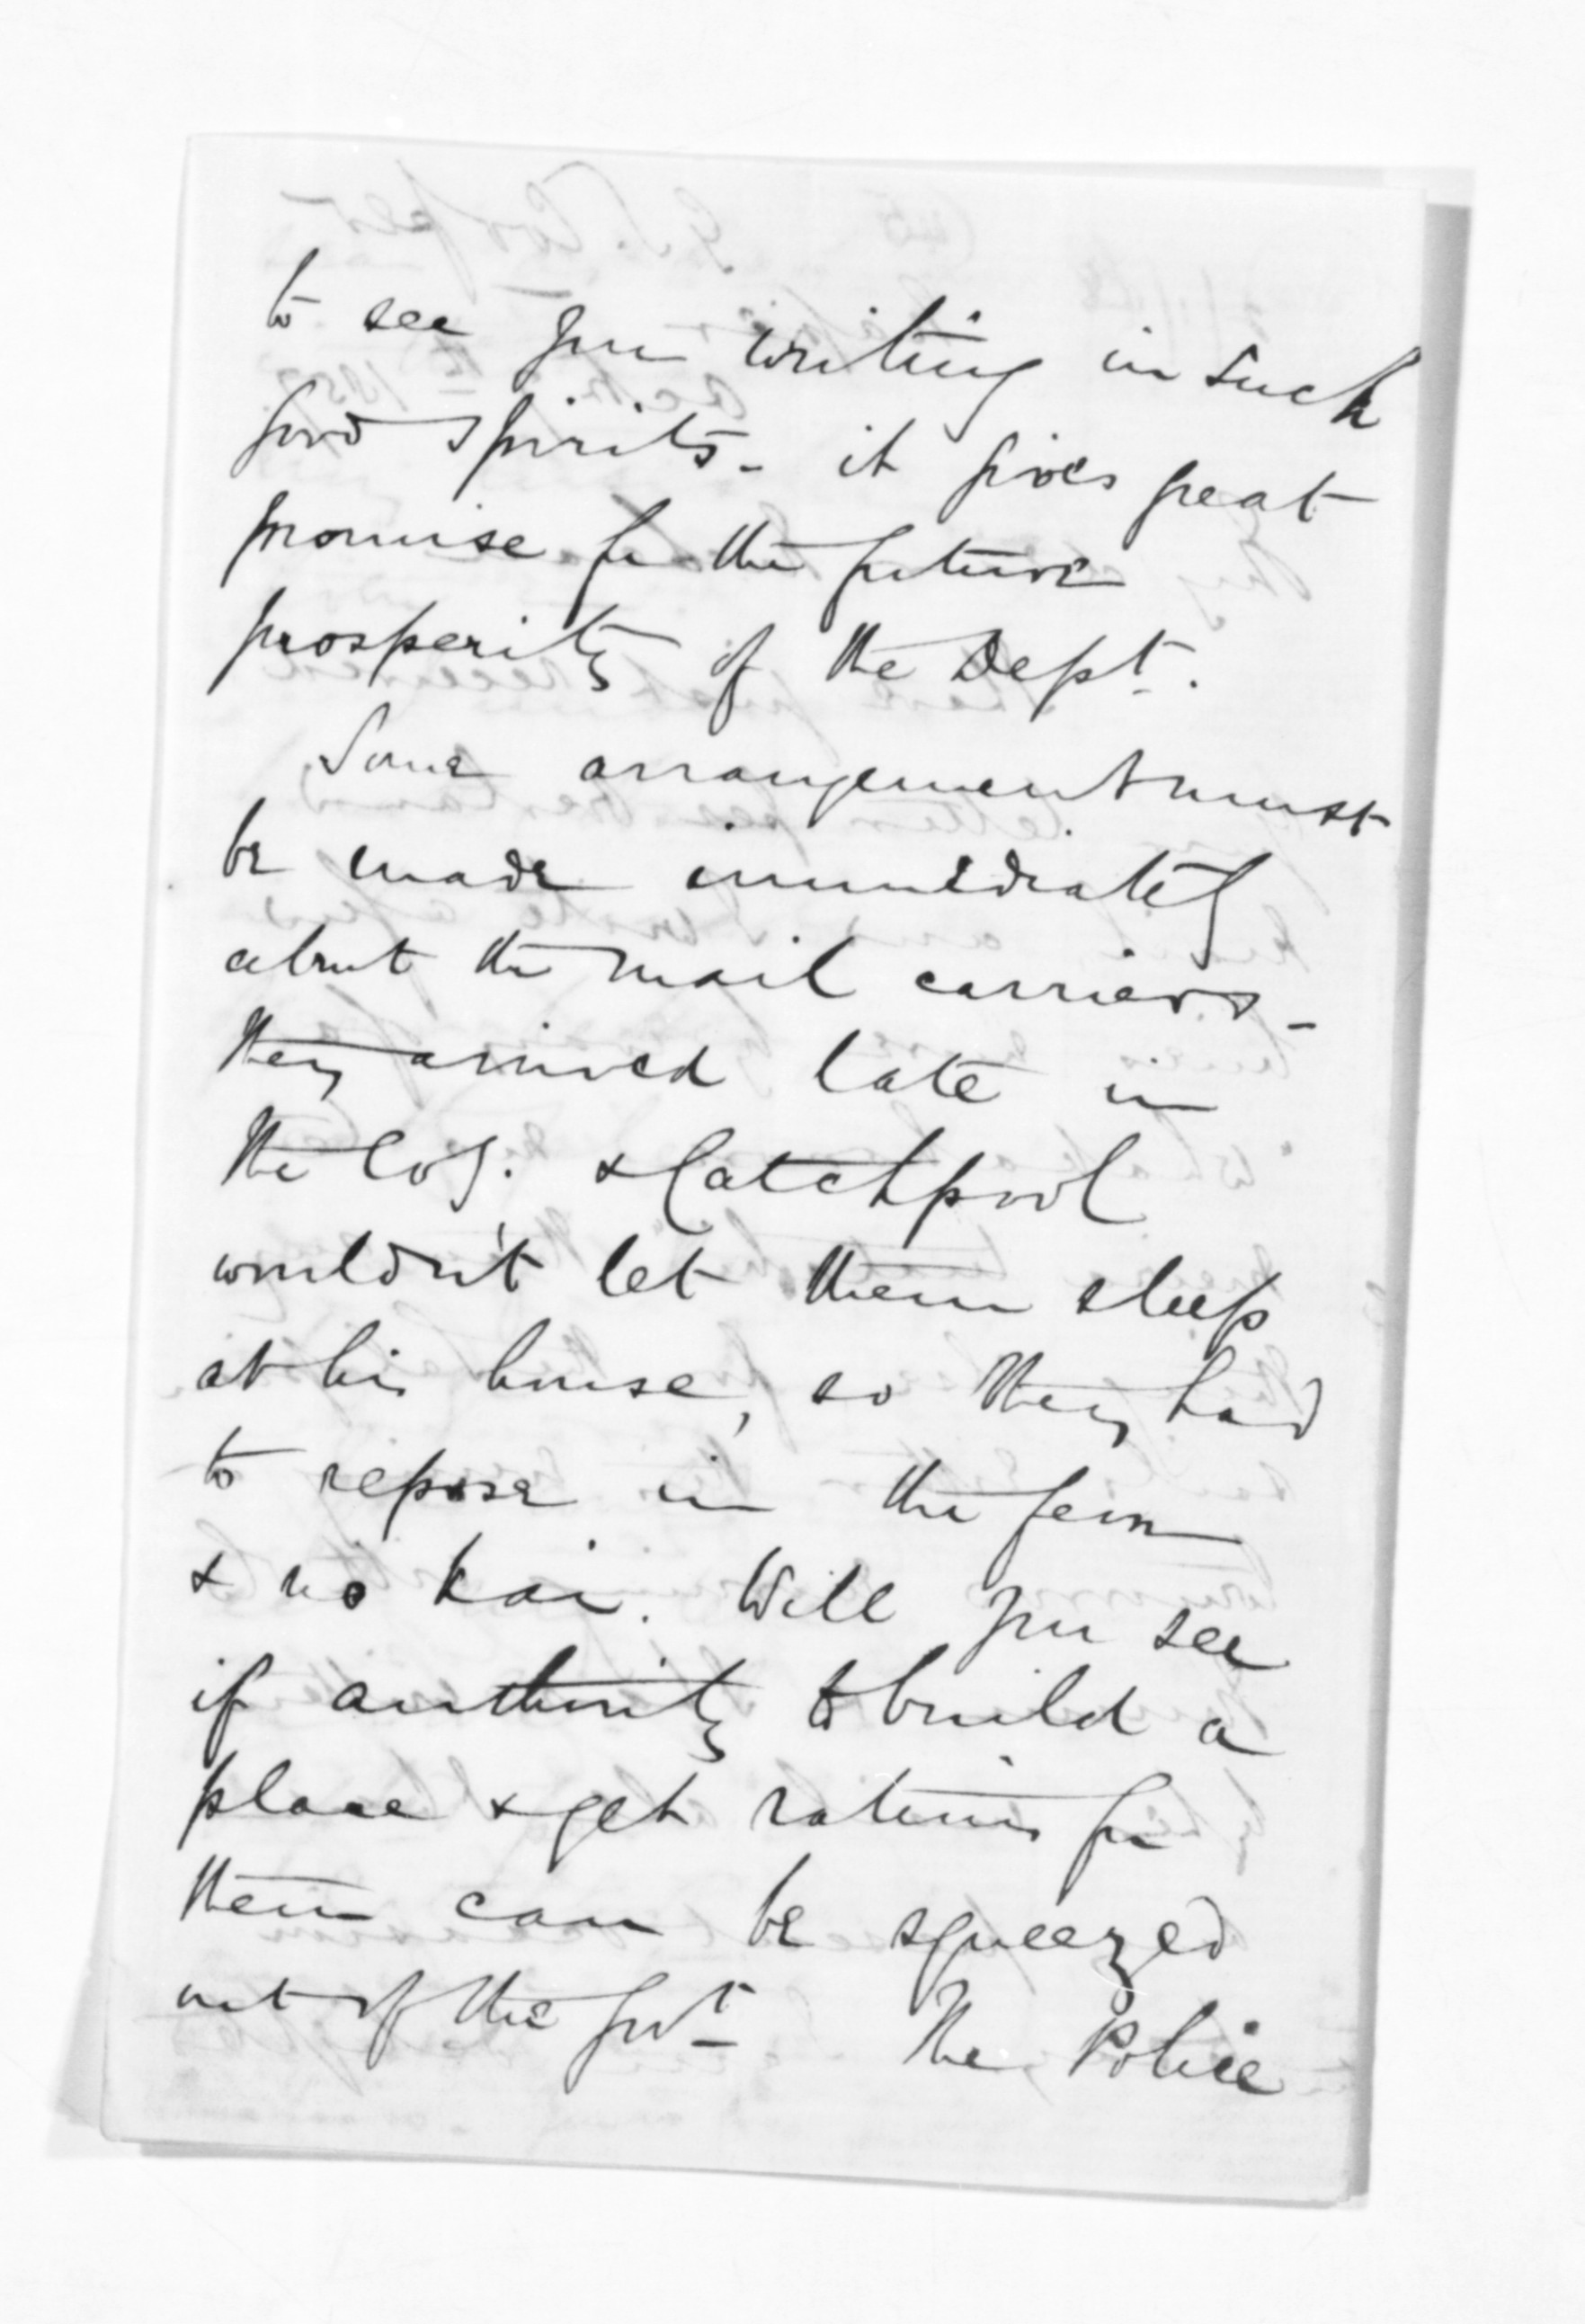 to see you writing in such
good spirits - it gives great
promise for the future
prosperity of the Dept.
Some arrangement must
be made immediately
about the mail carriers -
they arrived late in
the & Catchpool
wouldn't let them sleep
at his house, so they had
to repose in the fern
& no kai. Will you see
if authority to build a
place & get rations for
them can be squeezed
out of the Govt - The Police